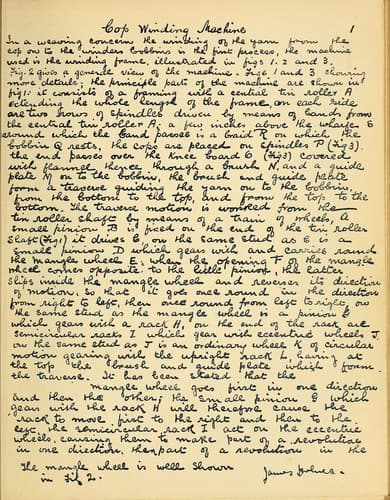 Cop Winding Machine 1
In a weaving concern the winding of the yarn from the
cop on to the winders bobbins is the first process, the machine
used is the winding frame, illustrated in figs 1. 2 and 3.
Fig. 2 gives a general view of the machine. Figs 1 and 3 showing
more details; the principle part of the machine are shown in
fig 1: it consists of a framing with a central tin roller A
extending the whole length of the frame, on each side
are two rows of spindles driven by means of bands from
the central tin roller A, a few inches above the wharfe
around which the band passes is a braid R on which the
bobbin Q rests, the cops are placed on spindles P (Fig 3).
the end passes over the knee board O (Fig 3) covered
with flannel thence through a brush N, and a guide
plate M on to the bobbin, the brush and guide plate
form a traverse guiding the yarn on to the bobbin,
from the bottom to the top, and from the top to the
bottom. The traverse motion is worked from the
tin roller shaft by means of a train of wheels, A
small pinion B is fixed on the end of the tin roller
shaft (Fig 1) it drives C, on the same stud as C is a
small pinion D which gears with and carries round
the mangle wheel E; when the opening F of the mangle
wheel comes opposite to the little pinion, the latter
slips inside the mangle wheel and reverses its direction
of motion, so that it goes one round in the direction
from right to left, then one round from left to right, on
the same stud as the mangle wheel is a pinion G
which gears with a rack H, on the end of the rack are
semicircular racks I which gear with eccentric wheels J.
on the same stud as J is an ordinary wheel K of circular
motion gearing with the upright rack L, having at
the top the brush and guide plate which form
the traverse. It has been stated that the
mangle wheel goes first in one direction
and then the other; the small pinion G which
gears with the rack H will therefore cause the
rack to move first to the right and then to the
left, the semicircular rack I act on the eccentric
wheels, causing them to make part of a revolution
in one direction, then part of a revolution in the
The mangle wheel is well shown
in Fig 2.
James Holmes.